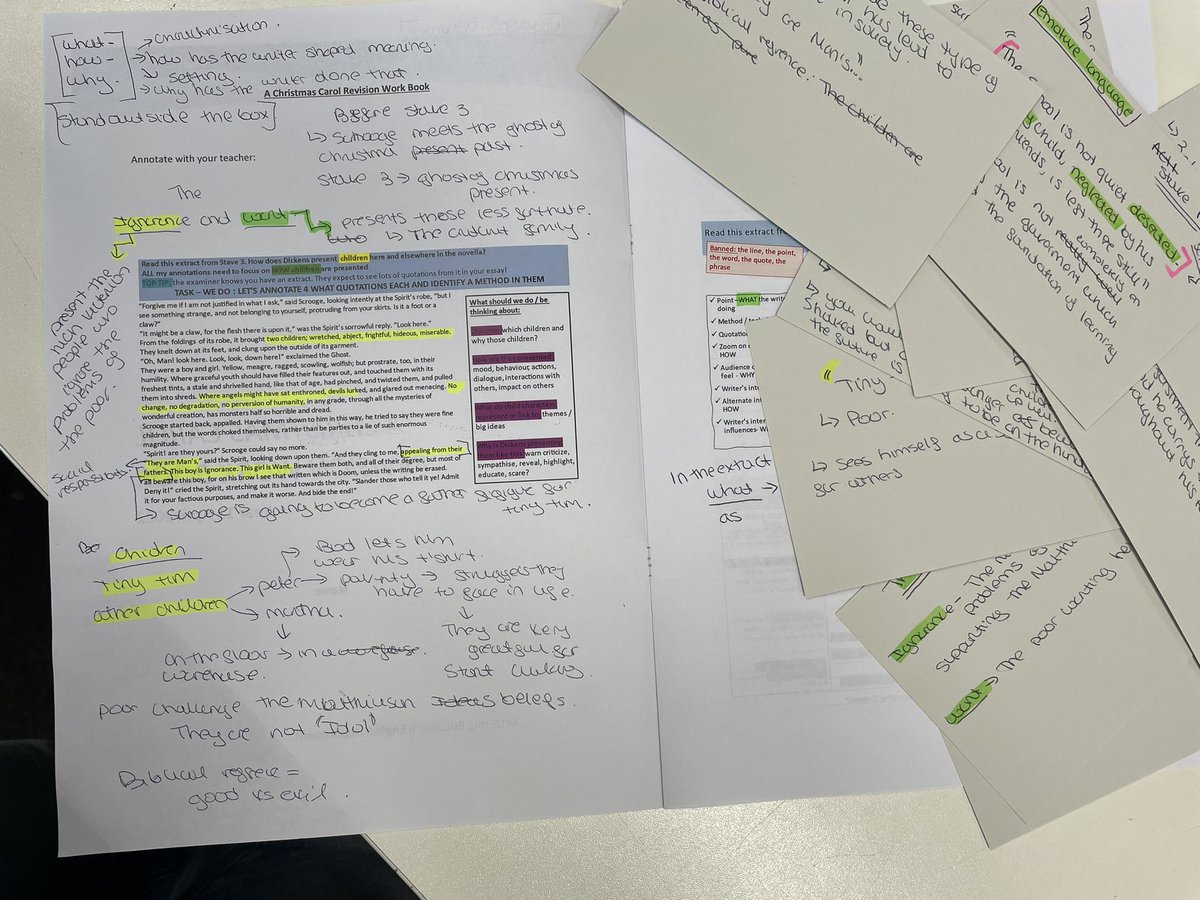 what-
how-
why.
→ characterisation.
→ how has the writer shaped meaning.
↳ setting.
→ why has the writer done that.
A Christmas Carol Revision Work Book
[Stand outside the box]
Before stave 3
↳ scrooge meets the ghost of
christma present past.
Annotate with your teacher:
stave 3 → ghost of christmas
present.
The
Ignorance and want
→ presents those less fortunate.
↳ The cratchit family.
present the
high
people who
ignore the
problems of
the poor.
Read this extract from Stave 3. How does Dickens present children here and elsewhere in the novella?
ALL my annotations need to focus on HOW children are presented
TOP TIP: the examiner knows you have an extract. They expect to see lots of quotations from it in your essay!
TASK – WE DO : LET'S ANNOTATE 4 WHAT QUOTATIONS EACH AND IDENTIFY A METHOD IN THEM
"Forgive me if I am not justified in what I ask," said Scrooge, looking intently at the Spirit's robe, "but I
see something strange, and not belonging to yourself, protruding from your skirts. Is it a foot or a
claw?"
"It might be a claw, for the flesh there is upon it," was the Spirit's sorrowful reply. "Look here."
From the foldings of its robe, it brought two children; wretched, abject, frightful, hideous, miserable.
They knelt down at its feet, and clung upon the outside of its garment.
"Oh, Man! look here. Look, look, down here!" exclaimed the Ghost.
They were a boy and girl. Yellow, meagre, ragged, scowling, wolfish; but prostrate, too, in their
humility. Where graceful youth should have filled their features out, and touched them with its
freshest tints, a stale and shrivelled hand, like that of age, had pinched, and twisted them, and pulled
them into shreds. Where angels might have sat enthroned, devils lurked, and glared out menacing. No
change, no degradation, no perversion of humanity, in any grade, through all the mysteries of
wonderful creation, has monsters half so horrible and dread.
Scrooge started back, appalled. Having them shown to him in this way, he tried to say they were fine
children, but the words choked themselves, rather than be parties to a lie of such enormous
magnitude.
"Spirit! are they yours?" Scrooge could say no more.
"They are Man's," said the Spirit, looking down upon them. "And they cling to me, appealing from their
fathers. This boy is Ignorance. This girl is Want. Beware them both, and all of their degree, but most of
all beware this boy, for on his brow I see that written which is Doom, unless the writing be erased.
Deny it!" cried the Spirit, stretching out its hand towards the city. "Slander those who tell it ye! Admit
it for your factious purposes, and make it worse. And bide the end!"
What should we do / be
thinking about:
Children: which children and
why those children?
How are they presented:
mood, behaviour, actions,
dialogue, interactions with
others, impact on others
What do child characters
represent or link to: themes /
big ideas
Why is Dickens presenting
them like this: warn criticize,
sympathise, reveal, highlight,
educate, scare?
social
responsibility
↳ scrooge is going to become a father figure for
tiny tim.
Children
Tiny tim
other children
→ Bod lets him
wear his tshirt.
→ peter → poverty → struggles they
have to face in life.
→ martha.
on the floor → in a
warehuse.
They are very
greatful for
start
poor challenge the malthusian Ideas beliefs.
They are not "Idol"
Biblical refrece =
good vs evil.
Read this extract fr
Banned: the line, the point,
the word, the quote, the
phrase
✓ Point–WHAT the writ
doing
✓ Method / te
✓ Quotation
✓ Zoom on
HOW
✓ Audience
feel - WHY
✓ Writer's inte
✓ Alternate int
HOW
✓ Writer's inter
influences- Wh
In the extract
what →
as
these type of
y are Man's..."
has lead to
in society.
biblical refrence.
The Children are
emotive language
"The
ool is not quiet deserted
y child, neglected by his
riends, is left there still"
the government
the foundation of learning
stave
↳ you
shared but
the future
"Tiny
↳ Poor.
↳ sees himself as
for others
Ignorance-
problems
supporting the Malth
want → The poor wanting he
throughout his